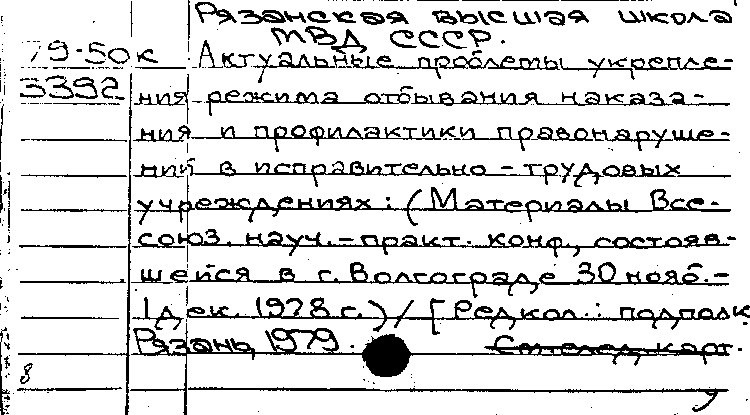 Рязанская высшая школа
МВД СССР.
79-50к Актуальные проблемы укрепле-
3392 ния режима отбывания наказа-
ния и профилактики правонаруше-
ний в исправительно-трудовых
учреждениях: (Материалы Все-
союз. науч.-практ. конф., состояв-
шейся в г. Волгограде 30 нояб.-
1 дек. 1978 г.) / [Редкол.: подполк.
Рязань, 1979. карт.
8